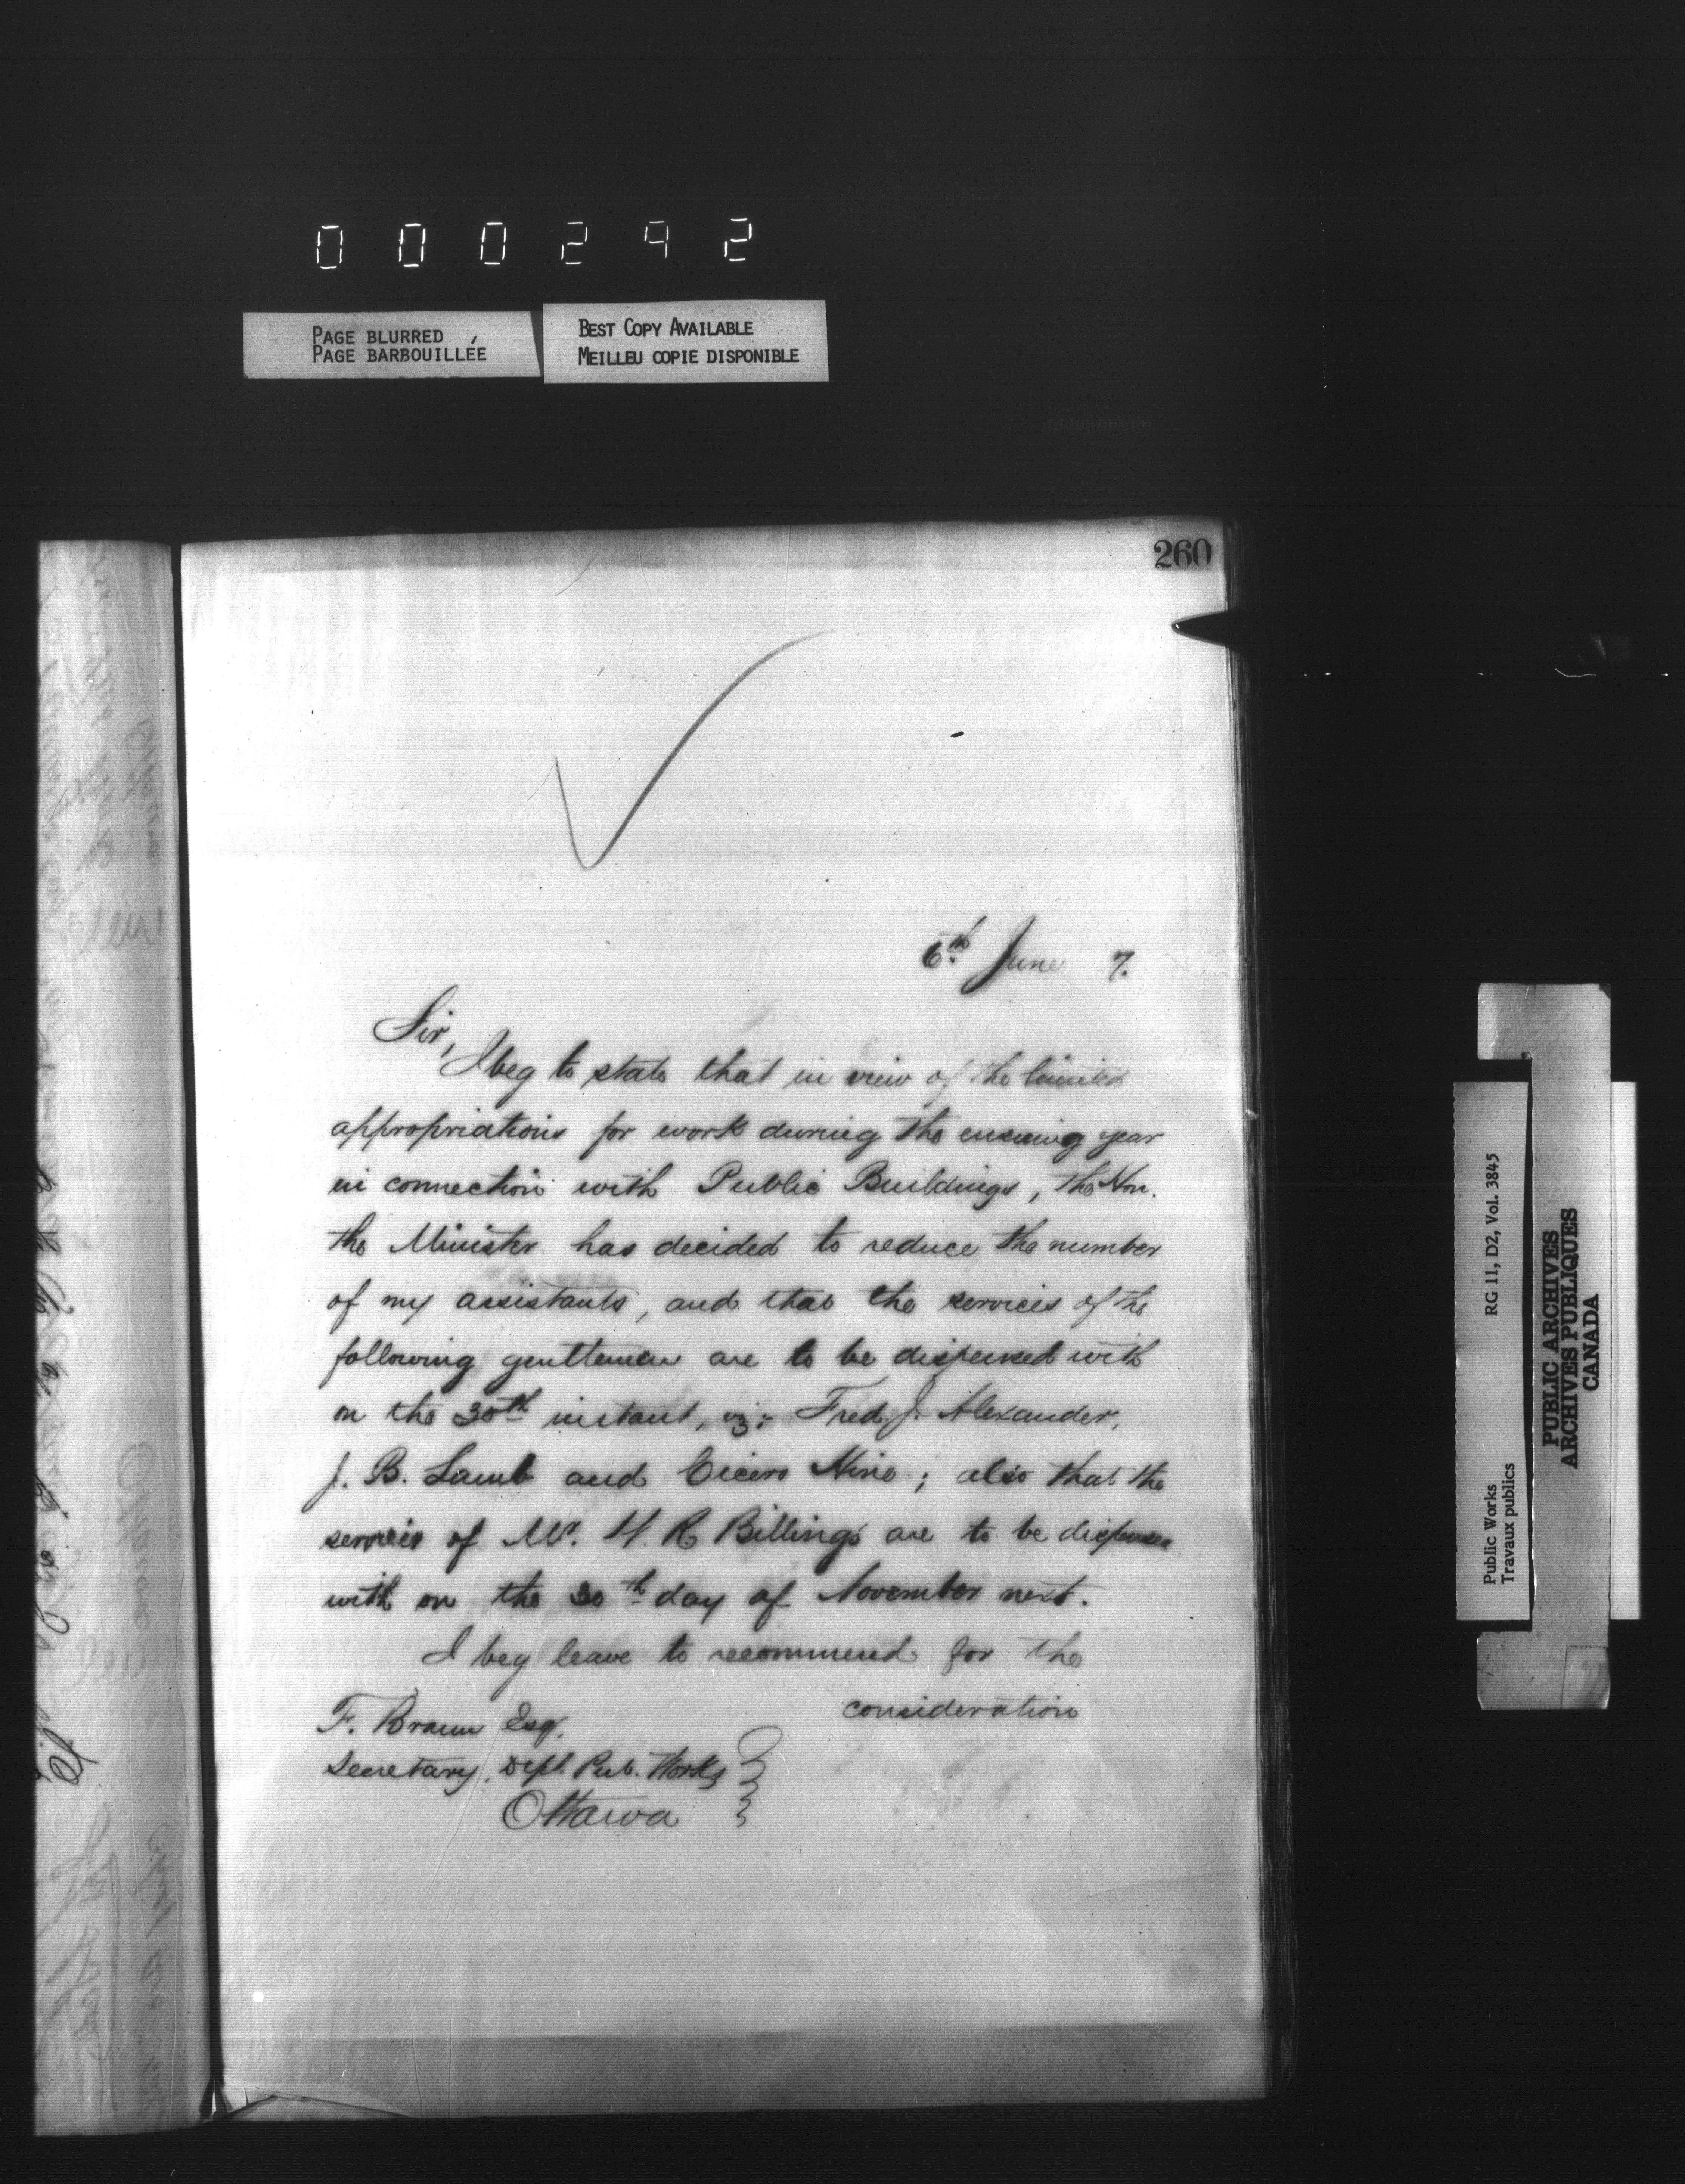 000292
PAGE BLURRED
PAGE BARBOUILLÉE
BEST COPY AVAILABLE
MEILLEU COPIE DISPONIBLE
260
6th June 7.
Sir,
I beg to state that in view of the limited
appropriations for work during the ensuing year
in connection with Public Buildings, the Hon.
the Minister has decided to reduce the number
of my assistants, and that the services of the
following gentlemen are to be dispensed with
on the 30th instant, viz:- Fred. J. Alexander,
J. B. Lamb and Cicero Hine; also that the
services of Mr. H. R Billings are to be dispensed
with on the 30th day of November next.
I beg leave to recommend for the
consideration
F. Braun Esq.
Secretary, Dept. Pub. Works
Ottawa
RG 11, D2, Vol. 3845
Public Works
Travaux publics
PUBLIC ARCHIVES
ARCHIVES PUBLIQUES
CANADA